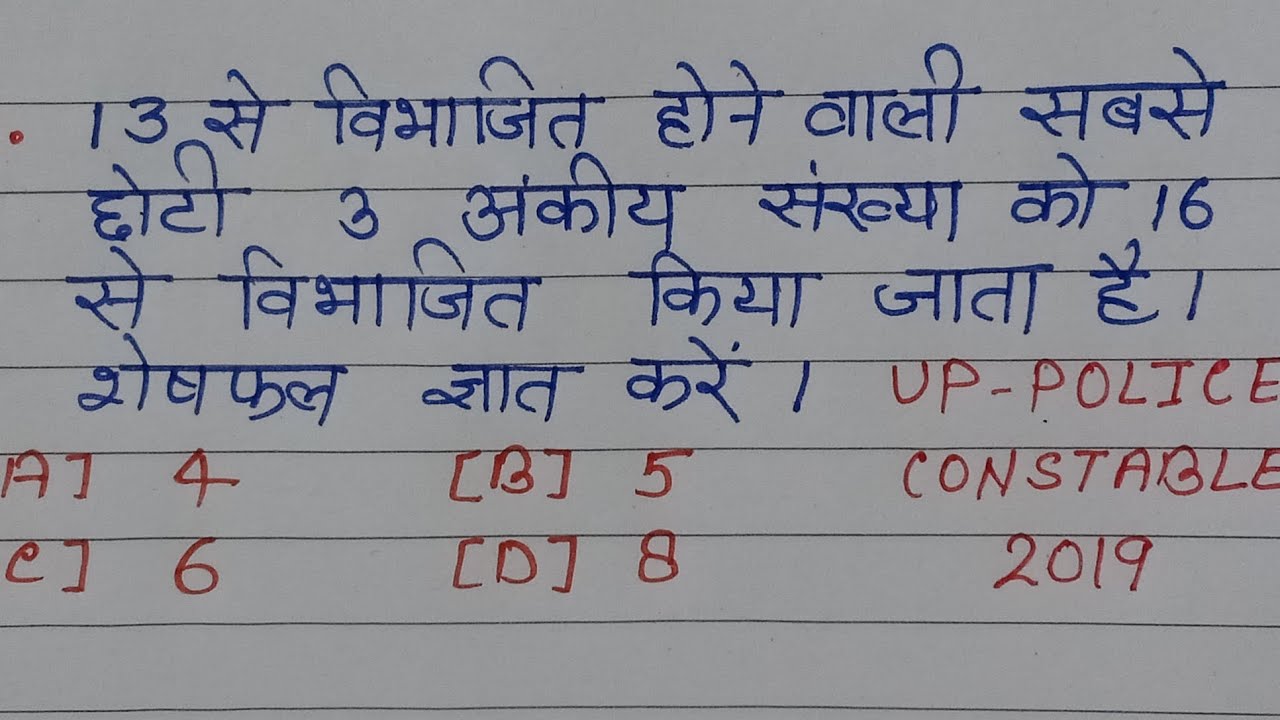 . 13 से विभाजित होने वाली सबसे
छोटी 3 अंकीय संख्या को 16
से विभाजित किया जाता है।
शेषफल ज्ञात करें। UP-POLICE
A] 4 [B] 5 CONSTABLE
C] 6 [D] 8 2019